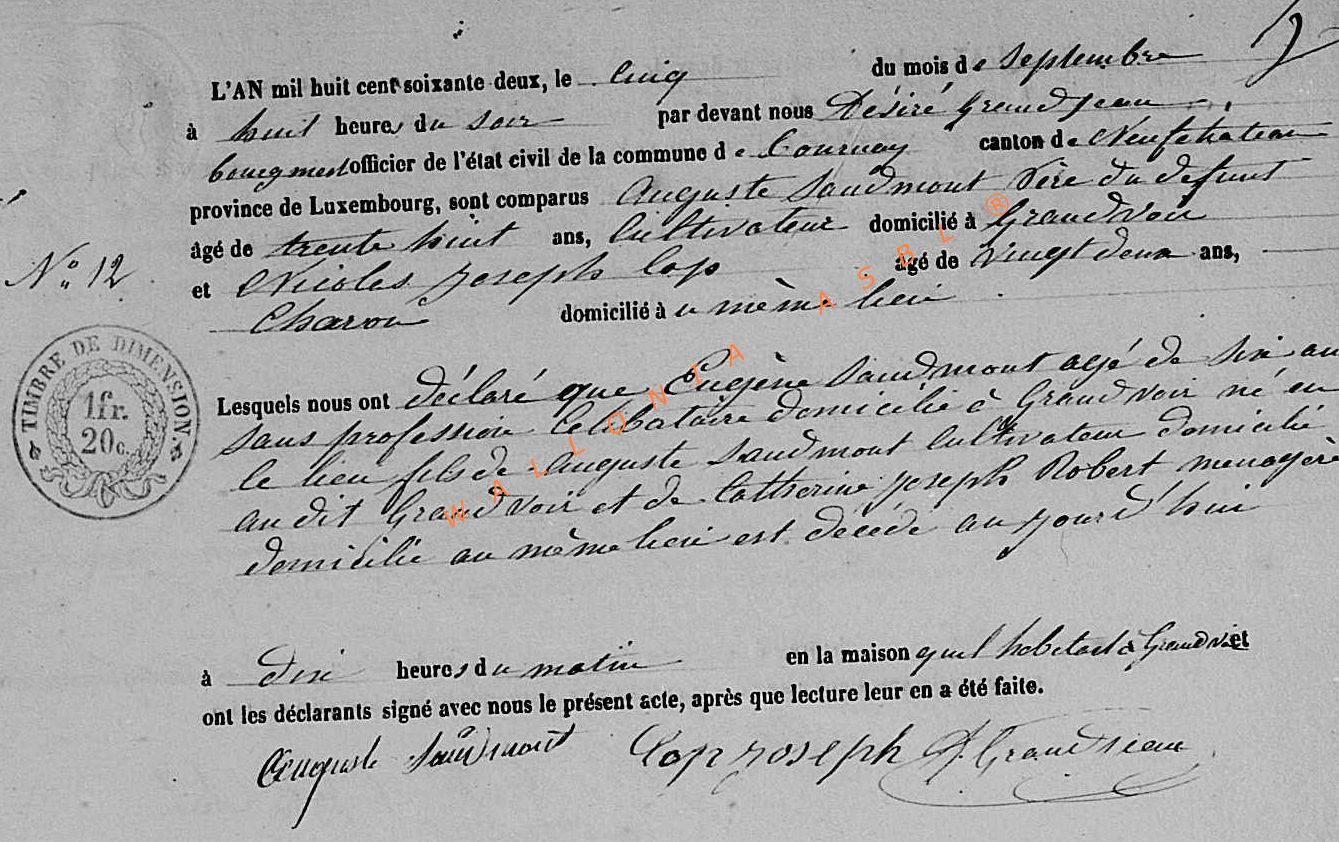 L'AN mil huit cent soixante deux, le Cinq du mois de Septembre
à huit heures du soir par devant nous Désiré Grandjean
bourgmest officier de l'état civil de la commune de Tournay canton de Neufchateau
province de Luxembourg, sont comparus Auguste Saudmont Père du defunt
âgé de trente huit ans, Cultivateur domicilié à Grandvoir
N° 12
et Nicolas Joseph Cop âgé de vingt deux ans,
Charon domicilié à u même lieu
Lesquels nous ont déclaré que Eugène Saudmont agé de six an
sans profession Celibataire domicilié à Grandvoir né en
le lieu fils de Auguste Saudmont Cultivateur domicilié
au dit Grandvoir et de Catherine Joseph Robert menagère
domicilié au même lieu est décédé au jourd'hui
à dix heures du matin en la maison qu'il habitait à Grandvoir et
ont les déclarants signé avec nous le présent acte, après que lecture leur en a été faite.
Auguste Saudmont Cop Joseph D. Grandjean
TIMBRE DE DIMENSION.
1fr.
20c.
WALLONIA ASBL ®